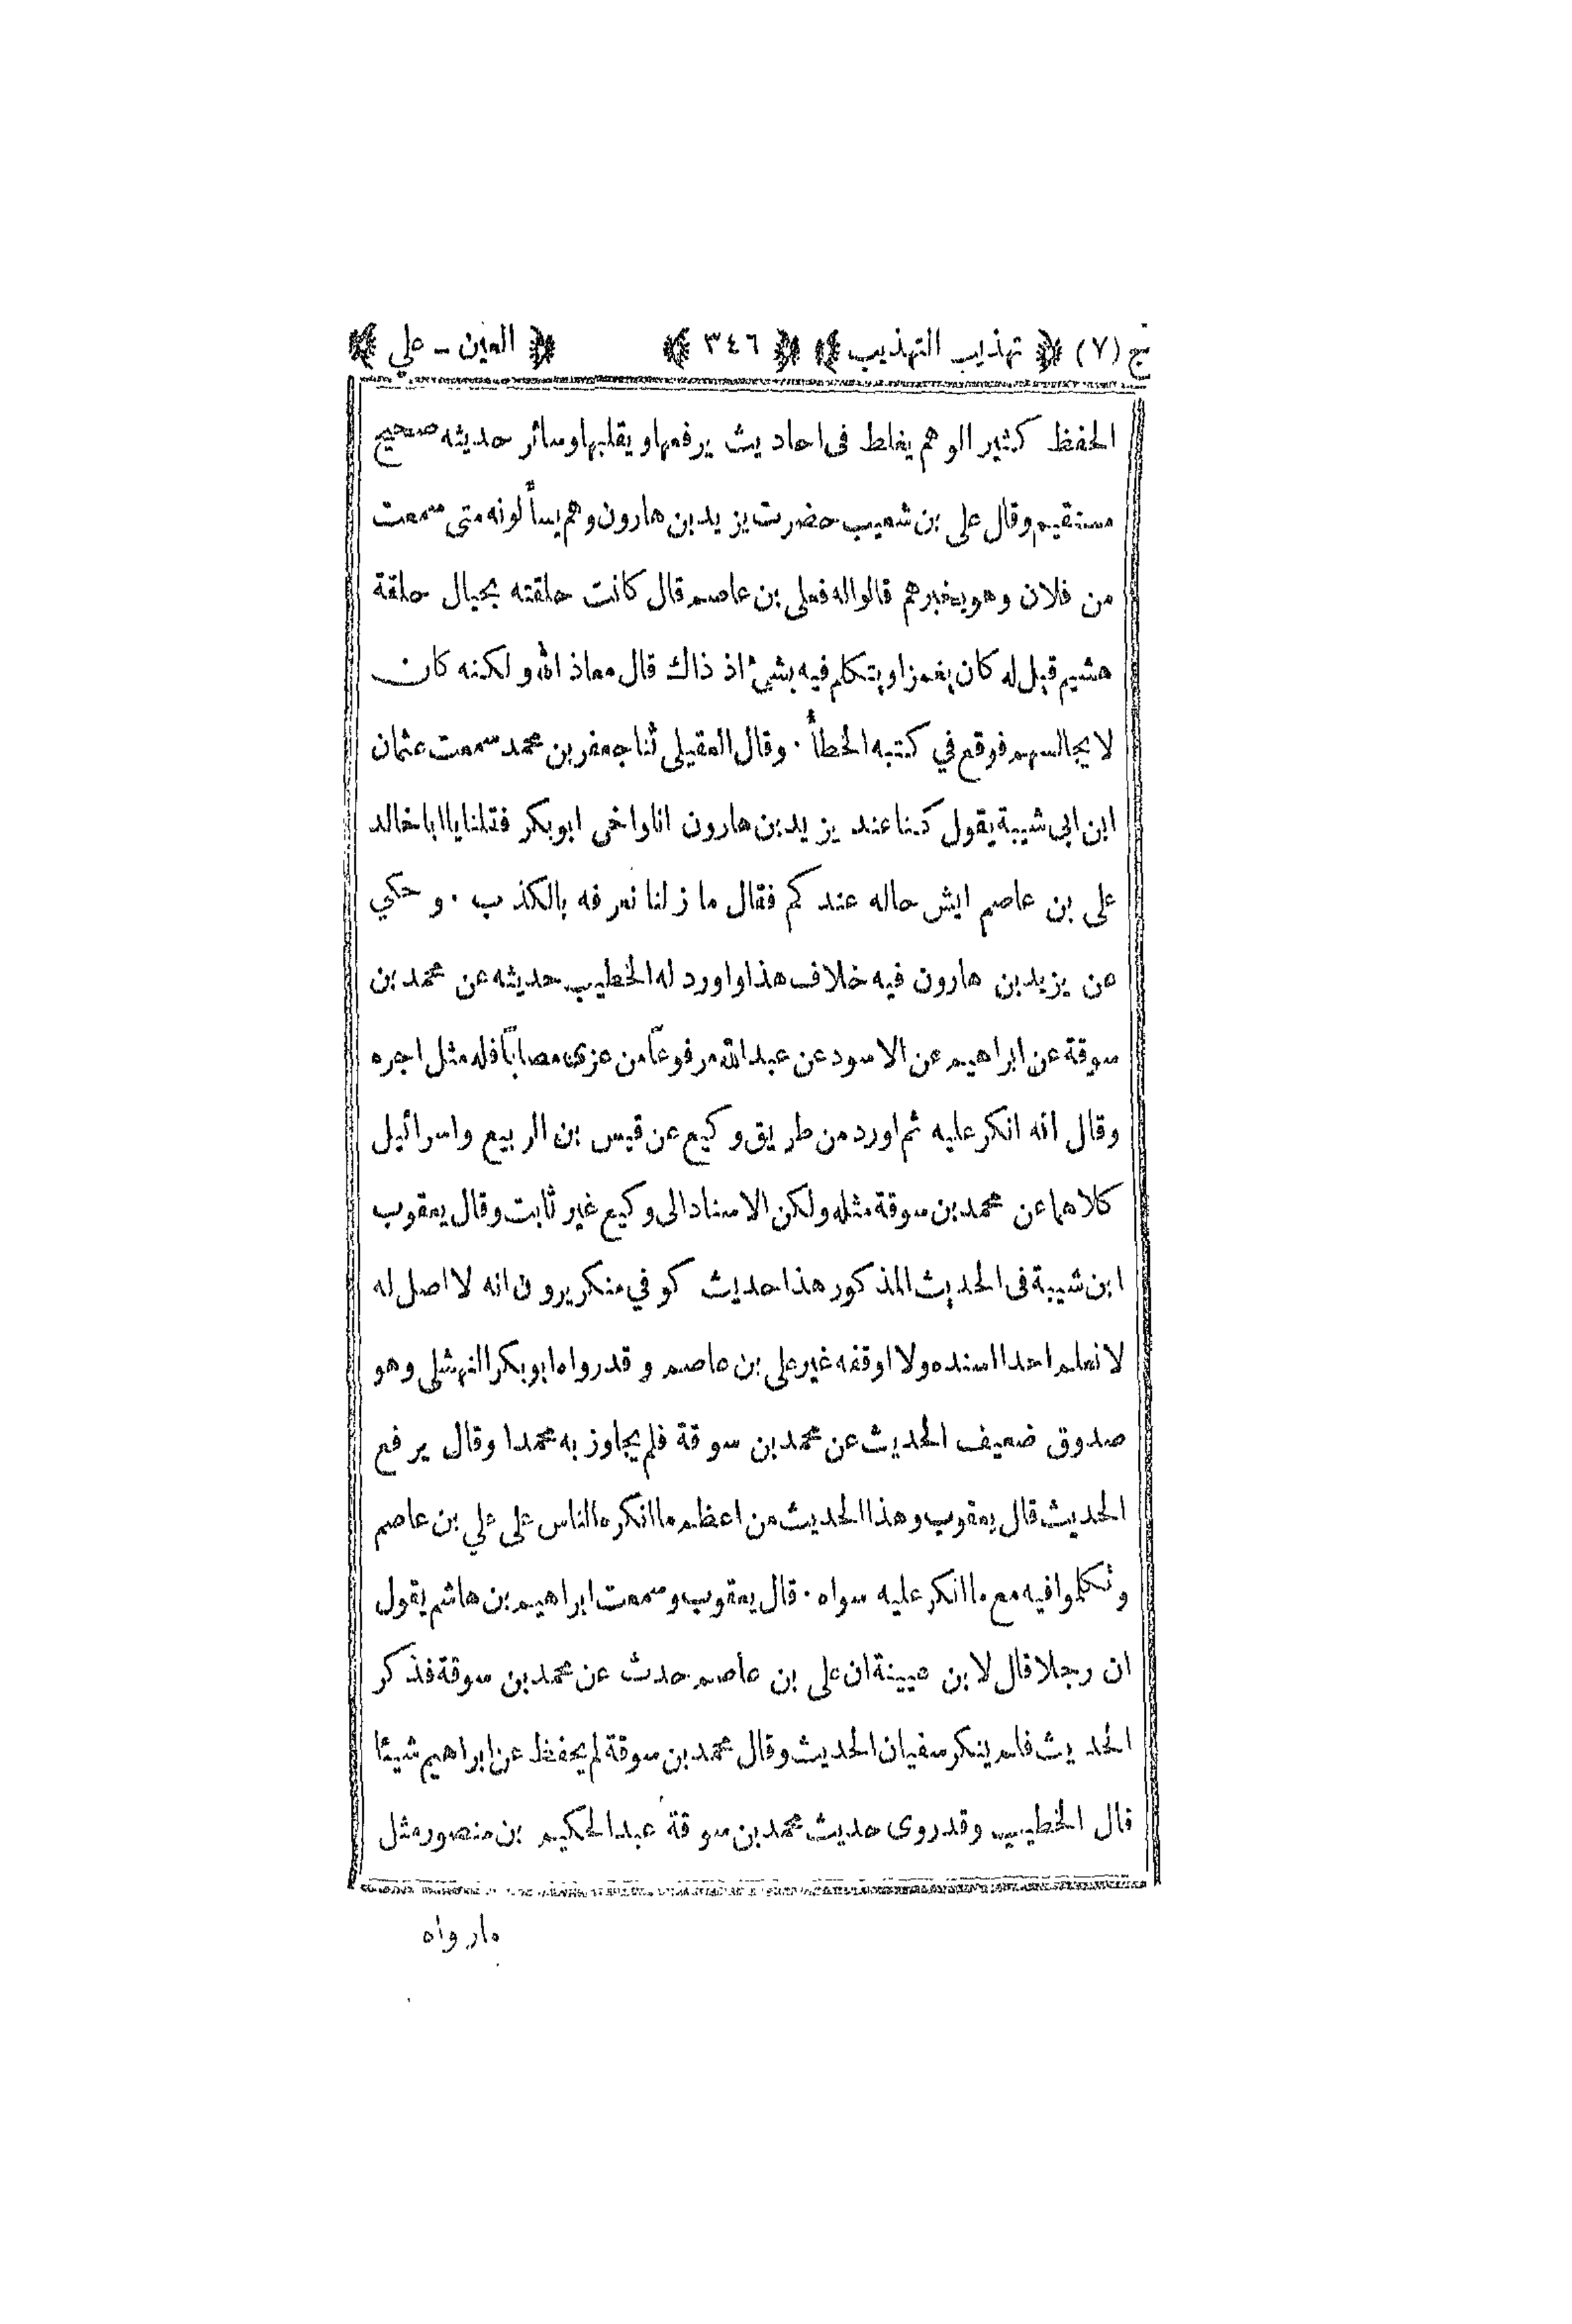 ج (٧) ﴿ تهذيب التهذيب ﴾ ﴿ ٣٤٦ ﴾ ﴿ العين - علي ﴾
الحفظ كثير الوهم يغلط فى احاديث يرفعها ويقلبها وسائر حديثه صحيح
مستقيم وقال على بن شعيب حضرت يزيد بن هارون وهم يسألونه متى سمعت
من فلان وهو يخبرهم قالوا له فعلى بن عاصم قال كانت حلقته بحيال حلقة
هشيم قيل له كان يغمز او يتكلم فيه بشئ اذ ذاك قال معاذ الله ولكنه كان
لا يجالسهم فوقع في كتبه الخطأ · وقال العقيلى ثنا جعفر بن محمد سمعت عثمان
ابن ابى شيبة يقول كنا عند يزيد بن هارون انا واخى ابو بكر فقلنا يا ابا خالد
على بن عاصم ايش حاله عندكم فقال ما زلنا نعرفه بالكذب · وحكي
عن يزيد بن هارون فيه خلاف هذا واورد له الخطيب حديثه عن محمد بن
سوقة عن ابراهيم عن الاسود عن عبد الله مرفوعاً من عزى مصاباً فله مثل اجره
وقال انه انكر عليه ثم اورد من طريق وكيع عن قيس بن الربيع واسرائيل
كلاهما عن محمد بن سوقة مثله ولكن الاسناد الى وكيع غير ثابت وقال يعقوب
ابن شيبة فى الحديث المذكور هذا حديث كوفي منكر يرون انه لا اصل له
لا نعلم احدا اسنده ولا اوقفه غير على بن عاصم وقد رواه ابو بكر النهشلى وهو
صدوق ضعيف الحديث عن محمد بن سوقة فلم يجاوز به محمدا وقال يرفع
الحديث قال يعقوب وهذا الحديث من اعظم ما انكره الناس على علي بن عاصم
وتكلموا فيه مع ما انكر عليه سواه · قال يعقوب وسمعت ابراهيم بن هاشم يقول
ان رجلا قال لابن عيينة ان على بن عاصم حدث عن محمد بن سوقة فذكر
الحديث فلم ينكر سفيان الحديث وقال محمد بن سوقة لم يحفظ عن ابراهيم شيئا
قال الخطيب وقد روى حديث محمد بن سوقة عبد الحكيم بن منصور مثل
ما رواه